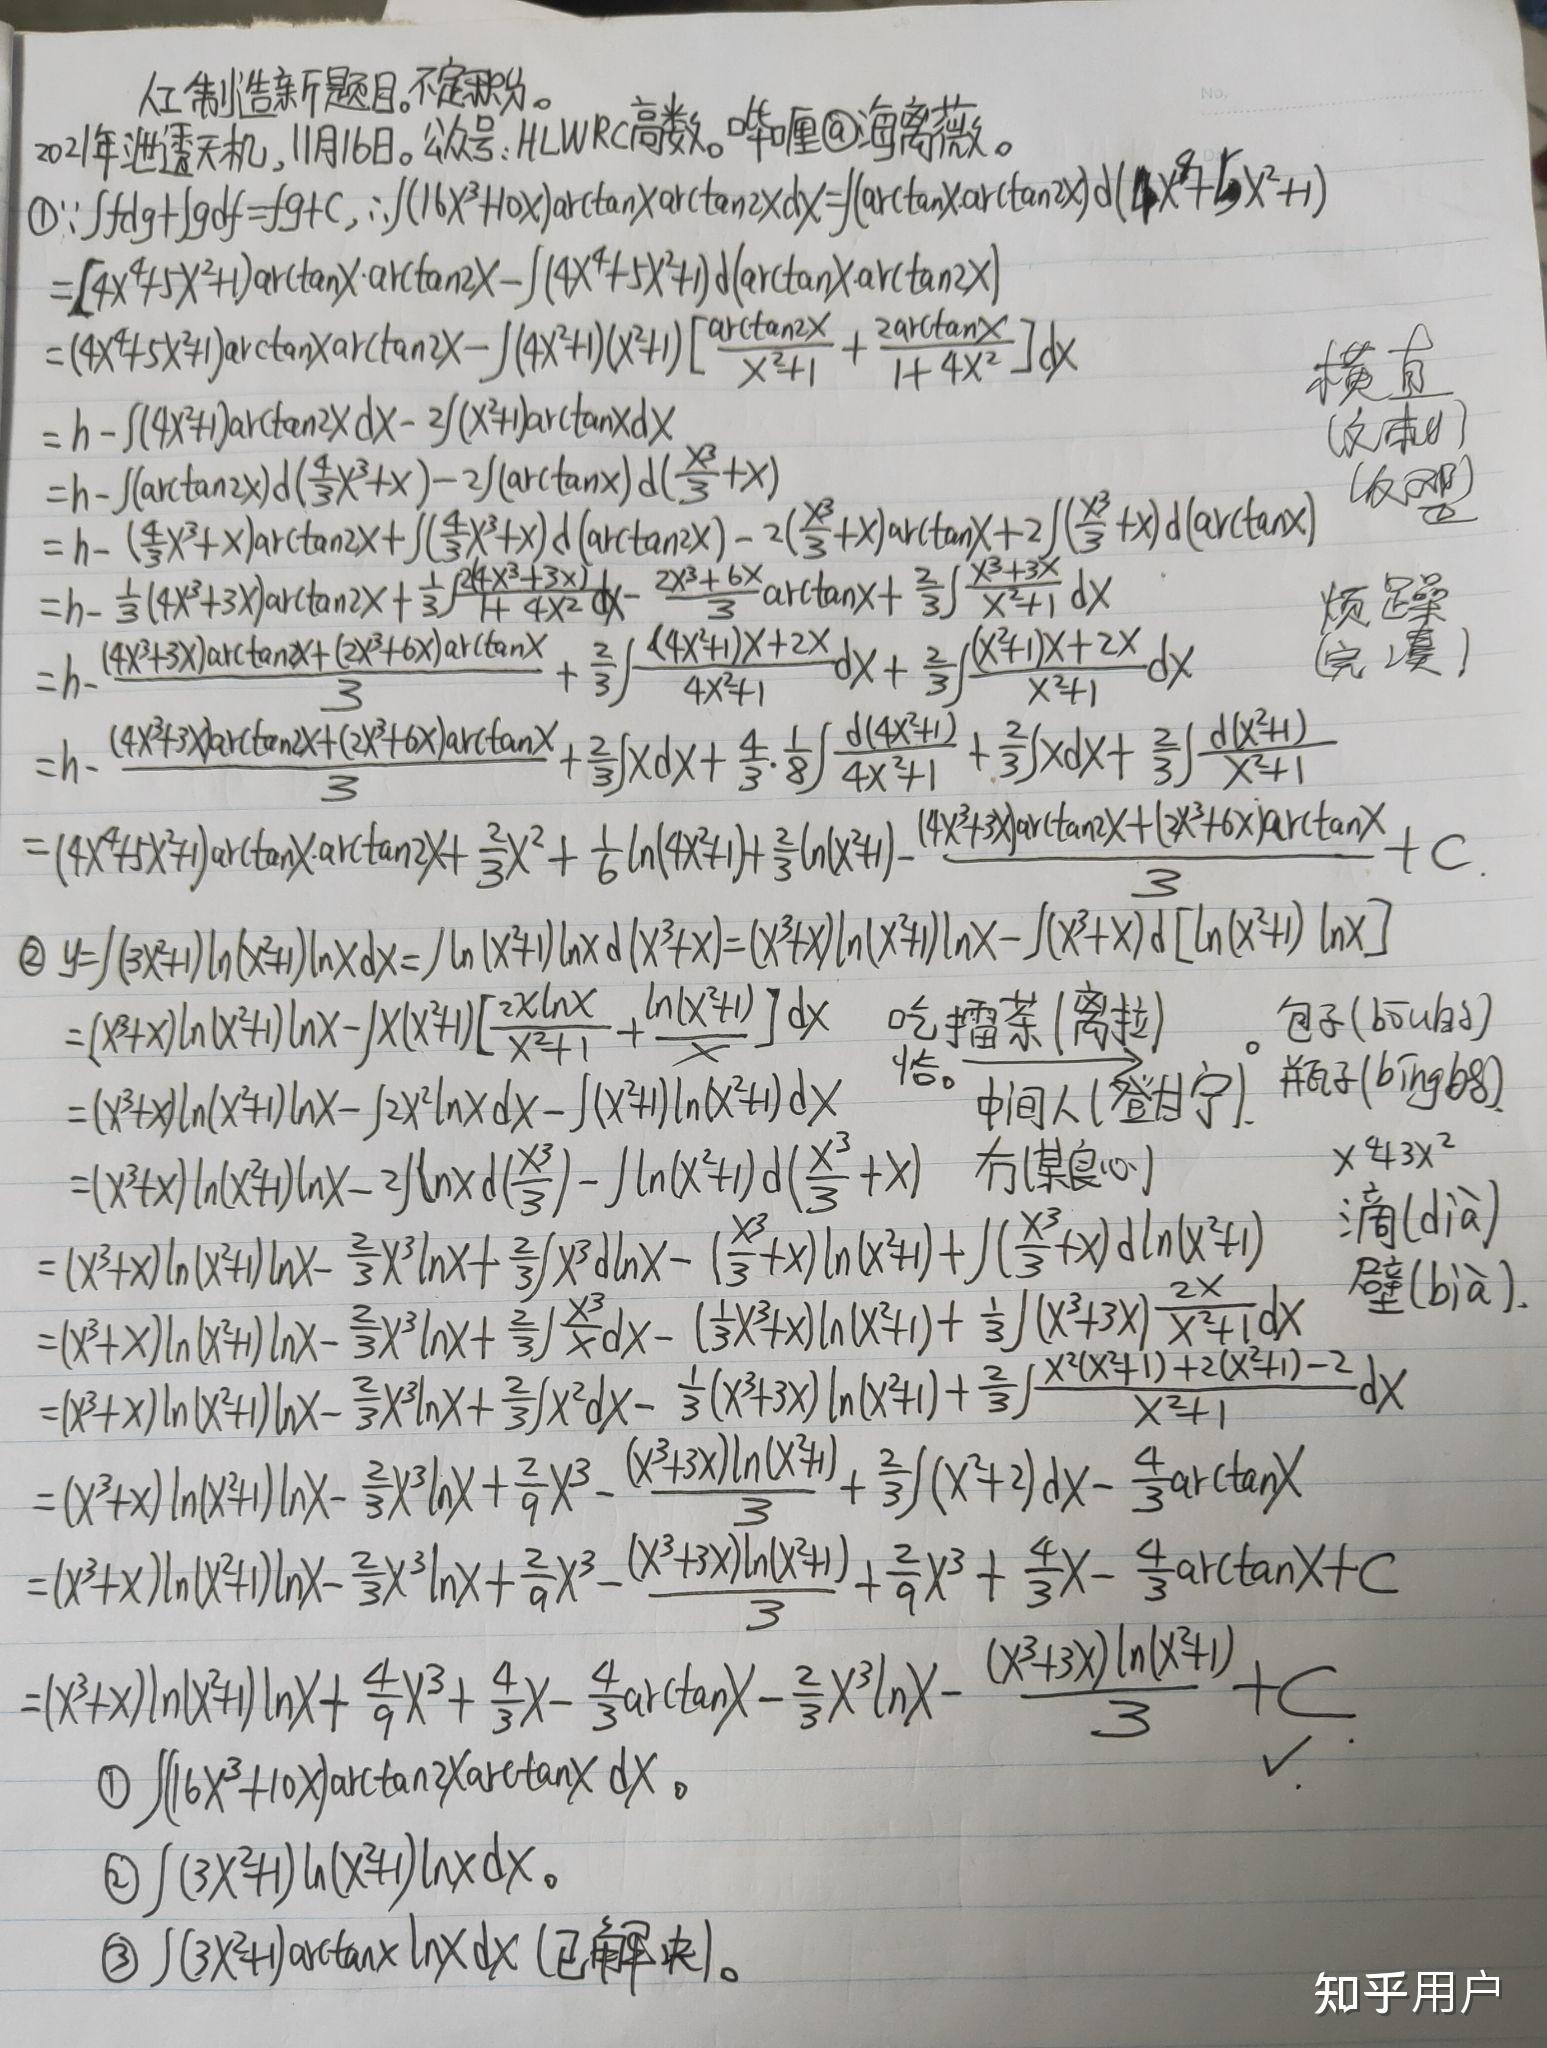 人工制造新题目。不定积分。
2021年泄透天机,11月16日。公众号:HLWRC高数。哔哩@海离薇。
①∵∫fdg+∫gdf=fg+C,∴∫(16X³+10X)arctanXarctan2Xdx=∫(arctanX·arctan2X)d(4X⁸+5X²+1)
=(4X⁴+5X²+1)arctanX·arctan2X-∫(4X⁴+5X²+1)d(arctanX·arctan2X)
=(4X⁴+5X²+1)arctanXarctan2X-∫(4X²+1)(X²+1)[arctan2X/(X²+1)+2arctanX/(1+4X²)]dX
=h-∫(4X²+1)arctan2XdX-2∫(X²+1)arctanXdX
=h-∫(arctan2X)d(4/3X³+X)-2∫(arctanX)d(X³/3+X)
=h-(4/3X³+X)arctan2X+∫(4/3X³+X)d(arctan2X)-2(X³/3+X)arctanX+2∫(X³/3+X)d(arctanX)
=h-1/3(4X³+3X)arctan2X+1/3∫2(4X³+3X)/(1+4X²)dX-(2X³+6X)/3arctanX+2/3∫(X³+3X)/(X²+1)dX
=h-((4X³+3X)arctan2X+(2X³+6X)arctanX)/3+2/3∫((4X²+1)X+2X)/(4X²+1)dX+2/3∫((X²+1)X+2X)/(X²+1)dX
=h-((4X³+3X)arctan2X+(2X³+6X)arctanX)/3+2/3∫XdX+4/3·1/8∫d(4X²+1)/(4X²+1)+2/3∫XdX+2/3∫d(X²+1)/(X²+1)
=(4X⁴+5X²+1)arctanX·arctan2X+2/3X²+1/6ln(4X²+1)+2/3ln(X²+1)-((4X³+3X)arctan2X+(2X³+6X)arctanX)/3+C.
横直
烦躁
②y=∫(3X²+1)ln(X²+1)lnXdX=∫ln(X²+1)lnXd(X³+X)=(X³+X)ln(X²+1)lnX-∫(X³+X)d[ln(X²+1)lnX]
=(X³+X)ln(X²+1)lnX-∫X(X²+1)[2XlnX/(X²+1)+ln(X²+1)/X]dX
=(X³+X)ln(X²+1)lnX-∫2X²lnXdX-∫(X²+1)ln(X²+1)dX
=(X³+X)ln(X²+1)lnX-2∫lnXd(X³/3)-∫ln(X²+1)d(X³/3+X)
吃擂茶(离拉)。
恰。
中间人(登甘宁).
冇(某良心)
包子(bōubad)
瓶子(bīngbg).
X⁴+3X²
滴(dià)
壁(bià).
=(X³+X)ln(X²+1)lnX-2/3X³lnX+2/3∫X³dlnX-(X³/3+X)ln(X²+1)+∫(X³/3+X)dln(X²+1)
=(X³+X)ln(X²+1)lnX-2/3X³lnX+2/3∫X³/XdX-(1/3X³+X)ln(X²+1)+1/3∫(X³+3X)2X/(X²+1)dX
=(X³+X)ln(X²+1)lnX-2/3X³lnX+2/3∫X²dX-1/3(X³+3X)ln(X²+1)+2/3∫(X²(X²+1)+2(X²+1)-2)/(X²+1)dX
=(X³+X)ln(X²+1)lnX-2/3X³lnX+2/9X³-(X³+3X)ln(X²+1)/3+2/3∫(X²+2)dX-4/3arctanX
=(X³+X)ln(X²+1)lnX-2/3X³lnX+2/9X³-(X³+3X)ln(X²+1)/3+2/9X³+4/3X-4/3arctanX+C
=(X³+X)ln(X²+1)lnX+4/9X³+4/3X-4/3arctanX-2/3X³lnX-(X³+3X)ln(X²+1)/3+C.
✓.
①∫(16X³+10X)arctan2XarctanXdX。
②∫(3X²+1)ln(X²+1)lnXdX。
③∫(3X²+1)arctanxlnXdX(已解决)。
知乎用户